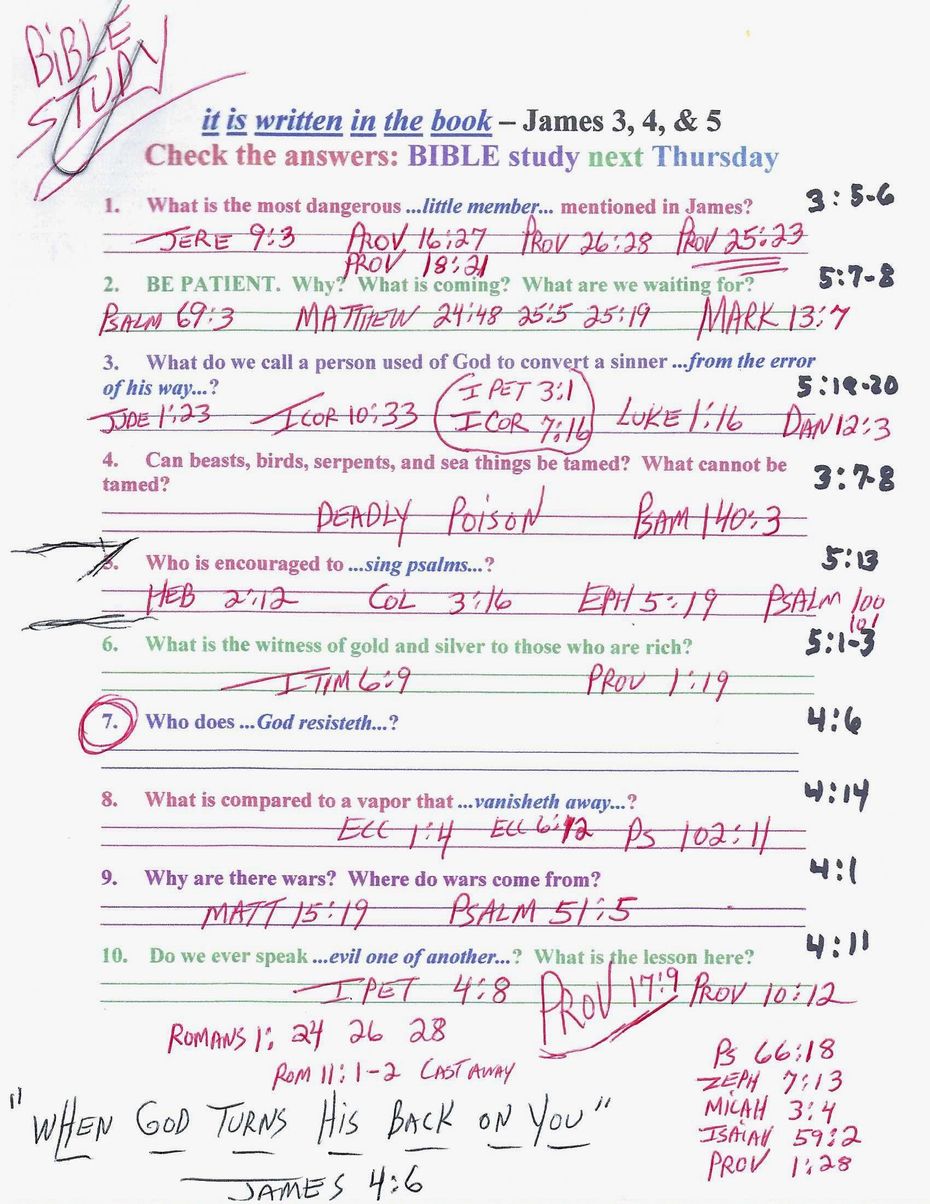 BIBLE
STUDY
it is written in the book – James 3, 4, & 5
Check the answers: BIBLE study next Thursday
1. What is the most dangerous ...little member... mentioned in James? 3:5-6
JERE 9:3 PROV 16:27 PROV 26:28 PROV 25:23
PROV 18:21
2. BE PATIENT. Why? What is coming? What are we waiting for? 5:7-8
PSALM 69:3 MATTHEW 24:48 25:5 25:19 MARK 13:7
3. What do we call a person used of God to convert a sinner ...from the error
of his way...? 5:19-20
JUDE 1:23 I COR 10:33 I PET 3:1 LUKE 1:16 DAN 12:3
I COR 7:16
4. Can beasts, birds, serpents, and sea things be tamed? What cannot be
tamed? 3:7-8
DEADLY POISON PSAM 140:3
5. Who is encouraged to ...sing psalms...? 5:13
HEB 2:12 COL 3:16 EPH 5:19 PSALM 100
101
6. What is the witness of gold and silver to those who are rich? 5:1-3
I TIM 6:9 PROV 1:19
7. Who does ...God resisteth...? 4:6
8. What is compared to a vapor that ...vanisheth away...? 4:14
ECC 1:4 ECC 6:12 PS 102:11
9. Why are there wars? Where do wars come from? 4:1
MATT 15:19 PSALM 51:5
10. Do we ever speak ...evil one of another...? What is the lesson here? 4:11
I PET 4:8 PROV 17:9 PROV 10:12
ROMANS 1: 24 26 28
ROM 11:1-2 CAST AWAY
PS 66:18
ZEPH 7:13
MICAH 3:4
ISAIAH 59:2
PROV 1:28
"WHEN GOD TURNS HIS BACK ON YOU"
JAMES 4:6